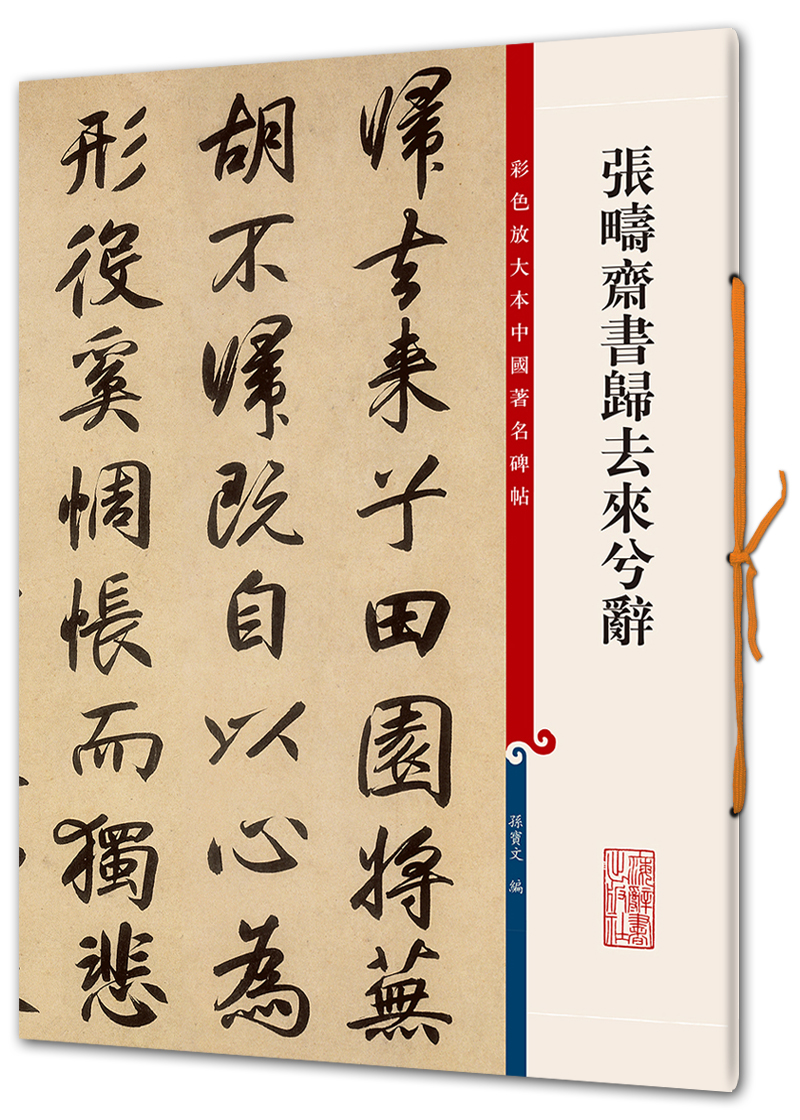 張疇齋書歸去來兮辭
上海辭書出版社
彩色放大本中國著名碑帖
孫寶文 編
歸去来兮田園将蕪
胡不歸既自以心為
形役奚惆悵而獨悲